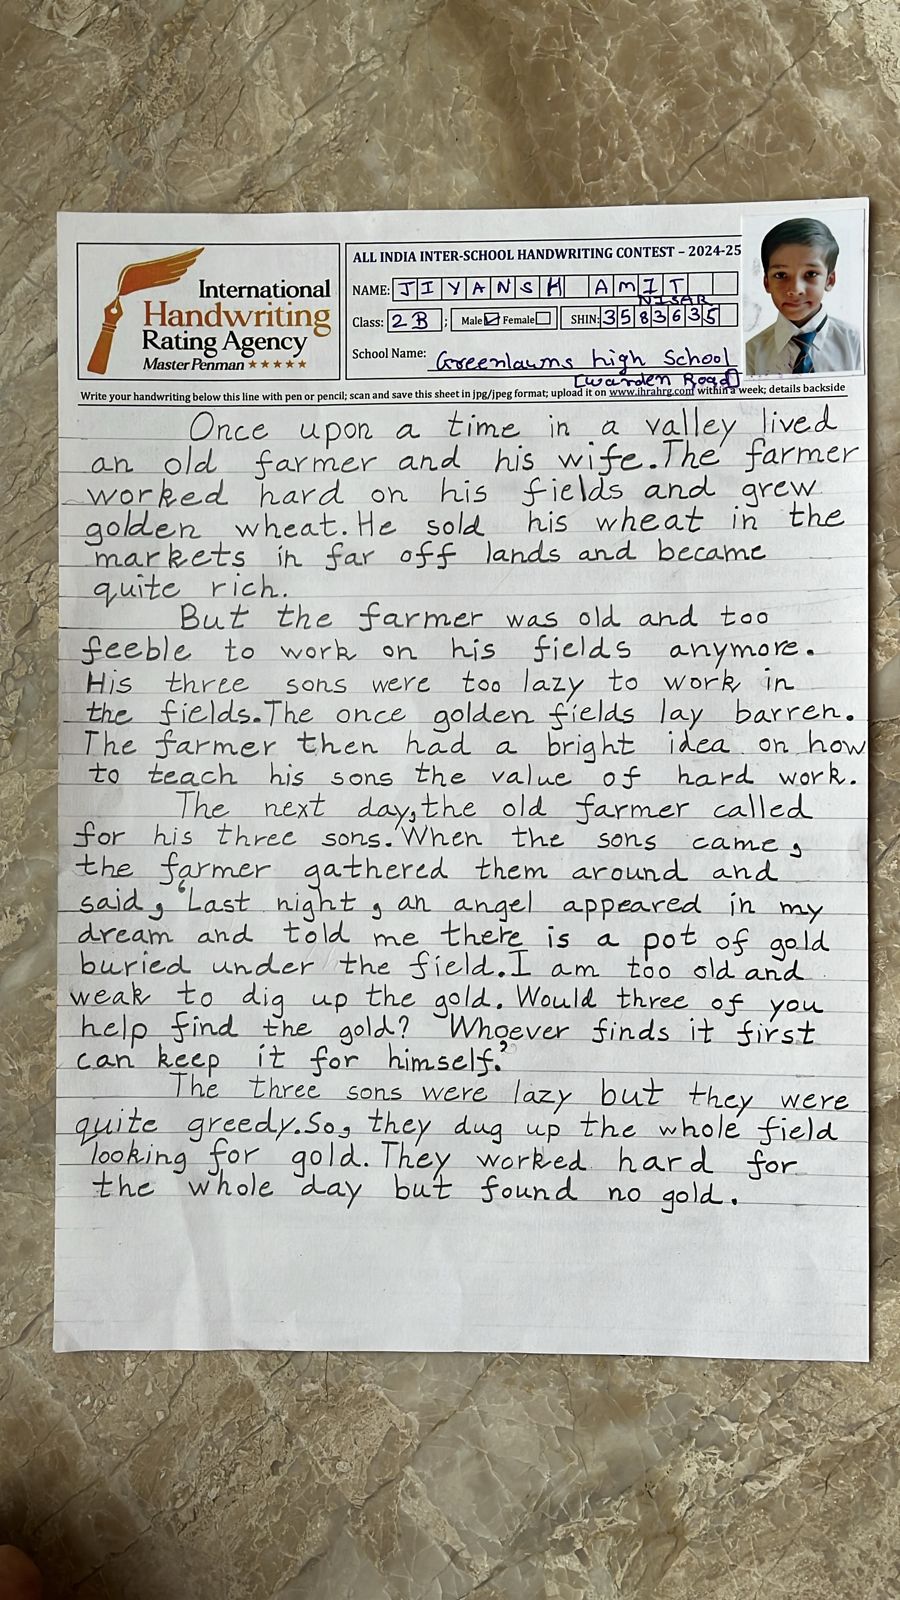 International
Handwriting
Rating Agency
Master Penman ★★★★★
ALL INDIA INTER-SCHOOL HANDWRITING CONTEST – 2024-25
NAME: JIYANSH AMIT
NISAR
Class: 2B ; Male ☑ Female ☐ SHIN: 35883635
School Name: Greenlawns high School
[Warden Road]
Write your handwriting below this line with pen or pencil; scan and save this sheet in jpg/jpeg format; upload it on www.ihrahrg.com within a week; details backside
Once upon a time in a valley lived
an old farmer and his wife. The farmer
worked hard on his fields and grew
golden wheat. He sold his wheat in the
markets in far off lands and became
quite rich.
But the farmer was old and too
feeble to work on his fields anymore.
His three sons were too lazy to work in
the fields. The once golden fields lay barren.
The farmer then had a bright idea on how
to teach his sons the value of hard work.
The next day, the old farmer called
for his three sons. When the sons came,
the farmer gathered them around and
said, 'Last night, an angel appeared in my
dream and told me there is a pot of gold
buried under the field. I am too old and
weak to dig up the gold. Would three of you
help find the gold? Whoever finds it first
can keep it for himself.'
The three sons were lazy but they were
quite greedy. So, they dug up the whole field
looking for gold. They worked hard for
the whole day but found no gold.